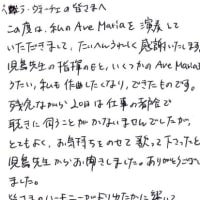 この度は、私の Ave Maria をご演奏して
いただきまして、たいへんうれしく感謝いたします
児島先生の指揮のもと、いくつかの Ave Maria
うたい、私も作曲したくなり、できたものです。
残念ながら 20日は仕事の都合で
聴きに伺うことがかないませんでしたが、
とてもよく、お気持ちものせて歌って下さったと
児島先生からお聞きしました。ありがとうござい
ました。